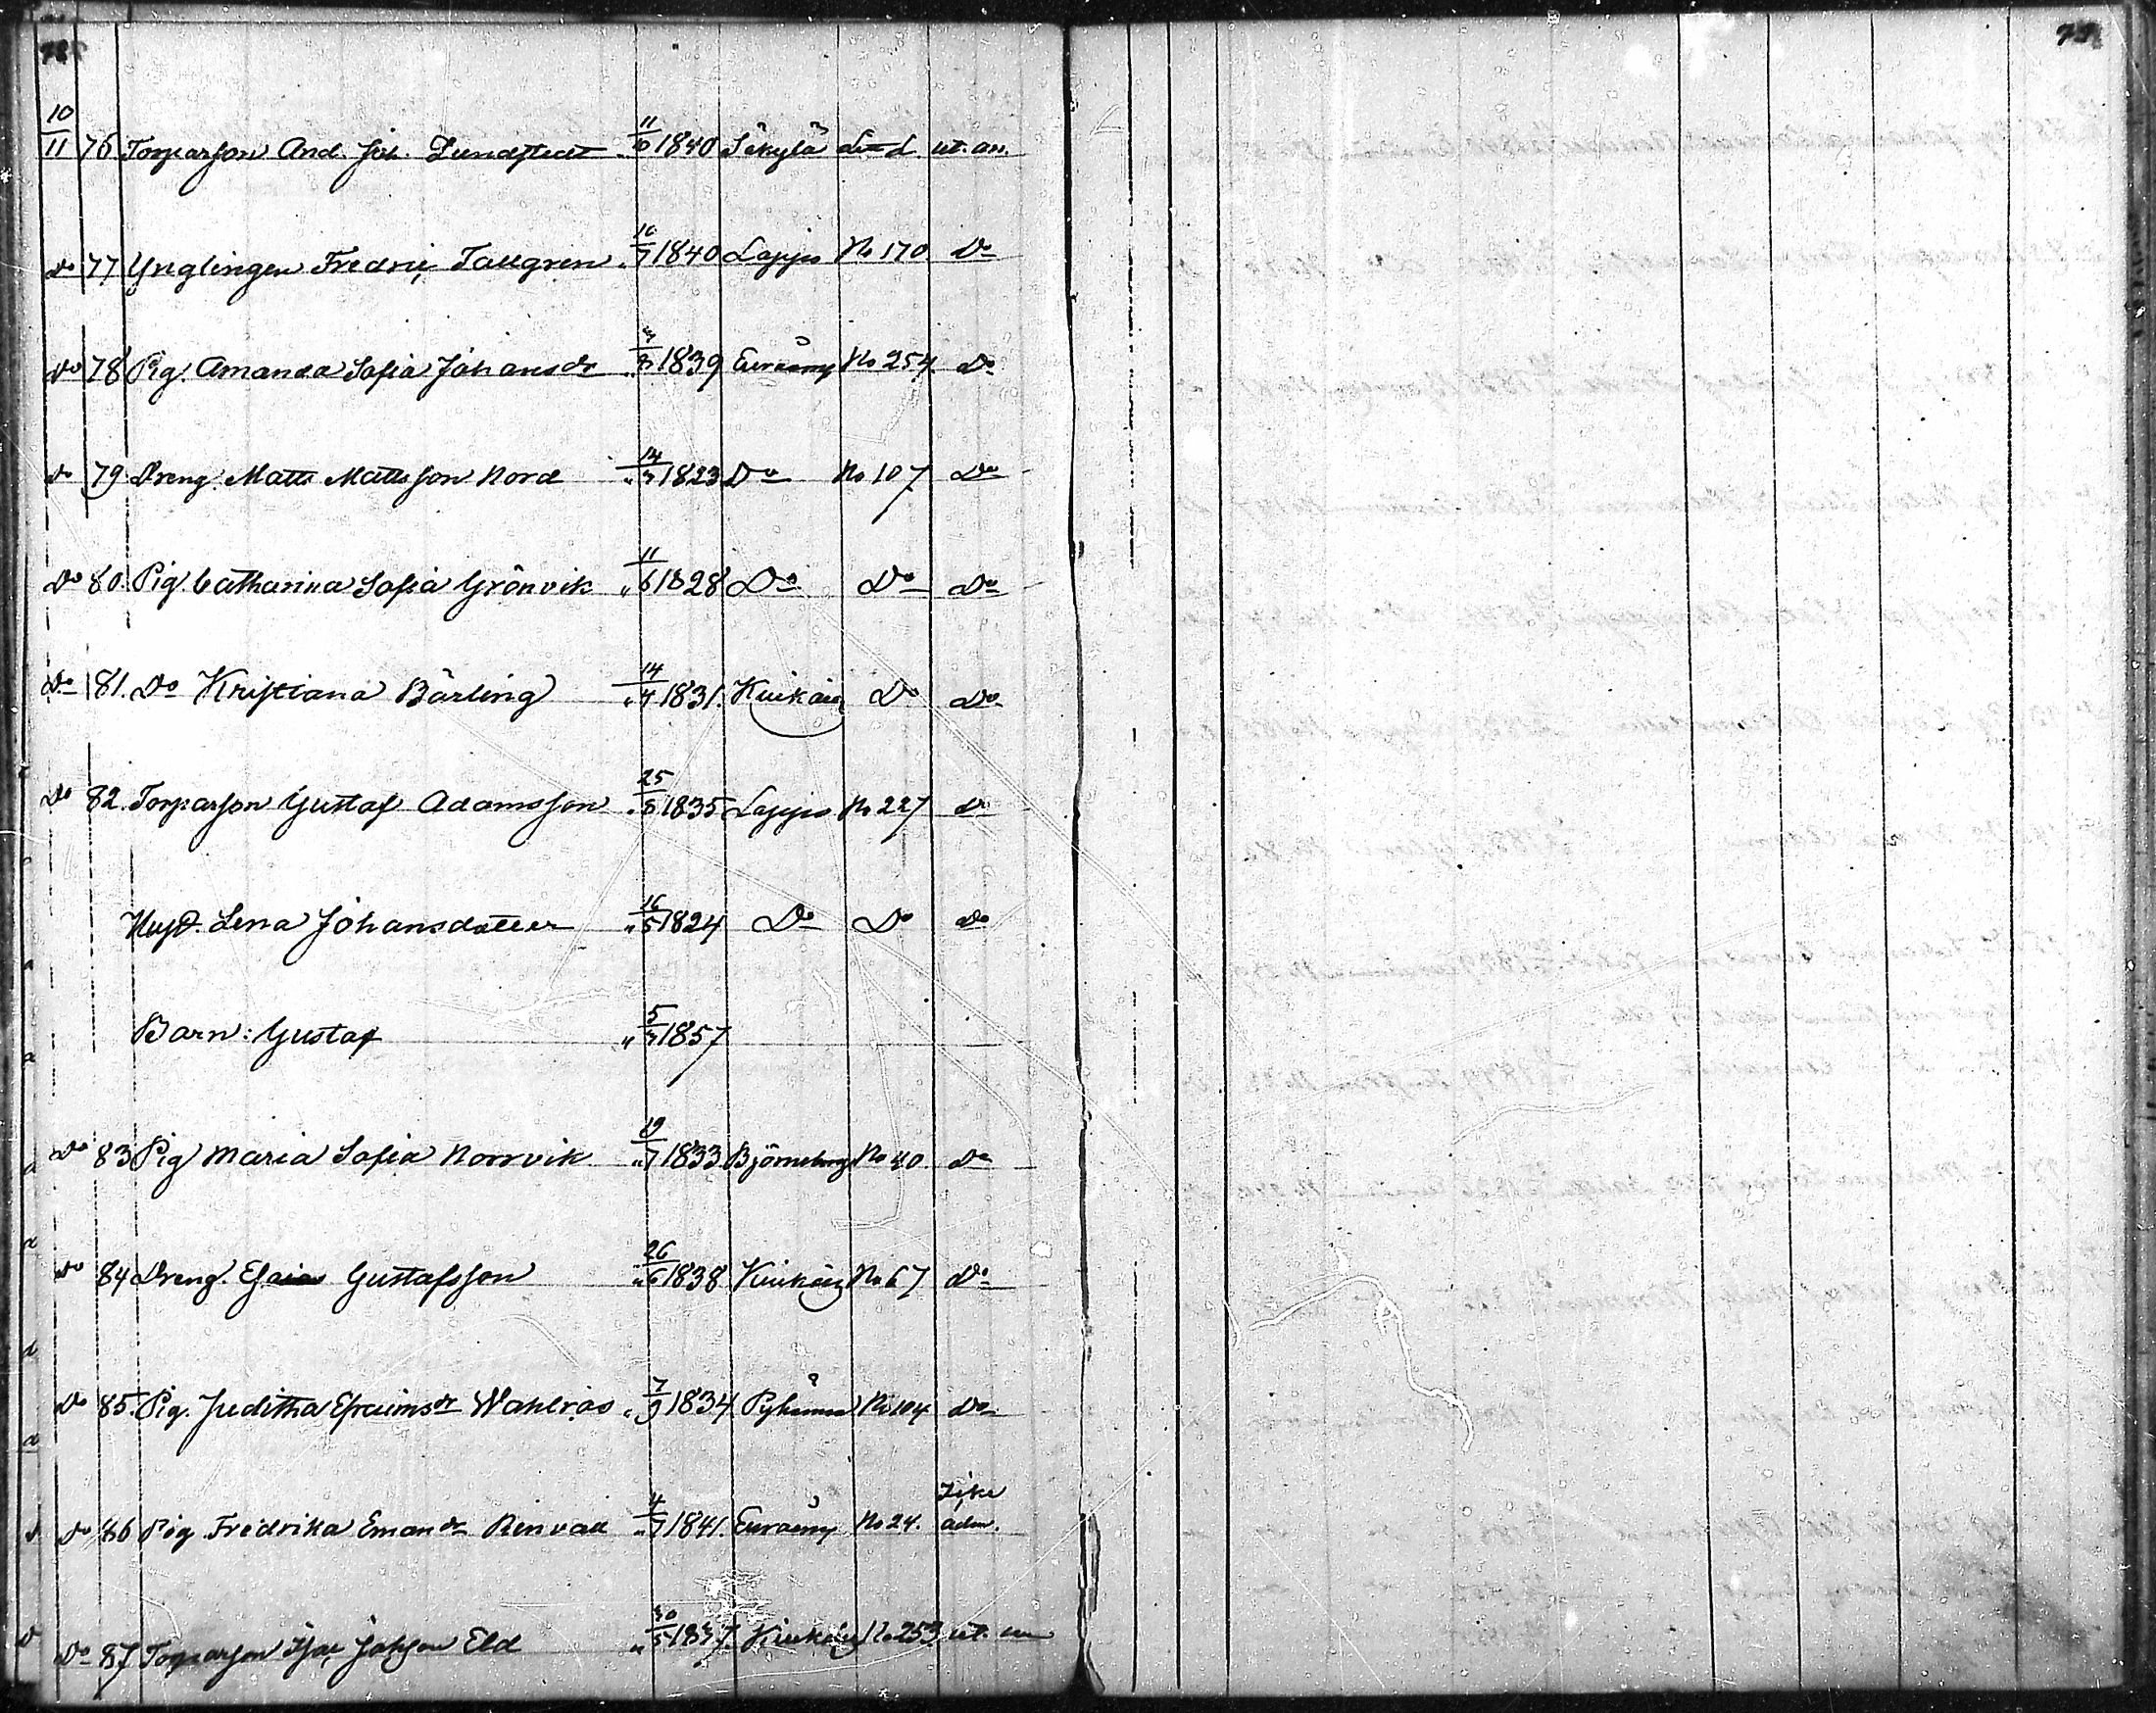 78
10/11 76 Torparson And. Joh. Lundstedt 11/6 1840 Säkylä ut. an.
Do 77 Ynglingen Fredric Tallgren " 10/7 1840 Lappo No 170 Do
Do 78 Pig. Amanda Sofia Johansdr " 1839 Euraåmy No 254 Do
Do 79 Dreng. Matts Mattsson Nord " 14/3 1823 Do No 107 Do
Do 80. Pig. Catharina Sofia Grönvik " 11/6 1828 Do Do Do
Do 81. Do Kristiana Bärling " 14/4 1831. Kiukais Do Do
Do 82. Torparson Gustaf Adamsson " 25/8 1835 Lappo No 227 Do
Hust. Lena Johansdotter " 16/5 1824 Do Do Do
Barn: Gustaf " 5/3 1857
Do 83 Pig Maria Sofia Norrvik " 19/7 1833 Björneborg No 40 Do
Do 84 Dreng. Esaias Gustafsson " 26/6 1838 Kiukais No 67 Do
Do 85. Pig. Juditha Efraimsdr Wahlros " 7/9 1834 Pyhämaa No 104 Do
Do 86 Pig Fredrika Emandr Renvall " 4/7 1841. Euraåmy No 24. Lika
adm.
Do 87 Torparson Isac Johsson Eld " 30/5 1837. Kiukais No 253 ut. an